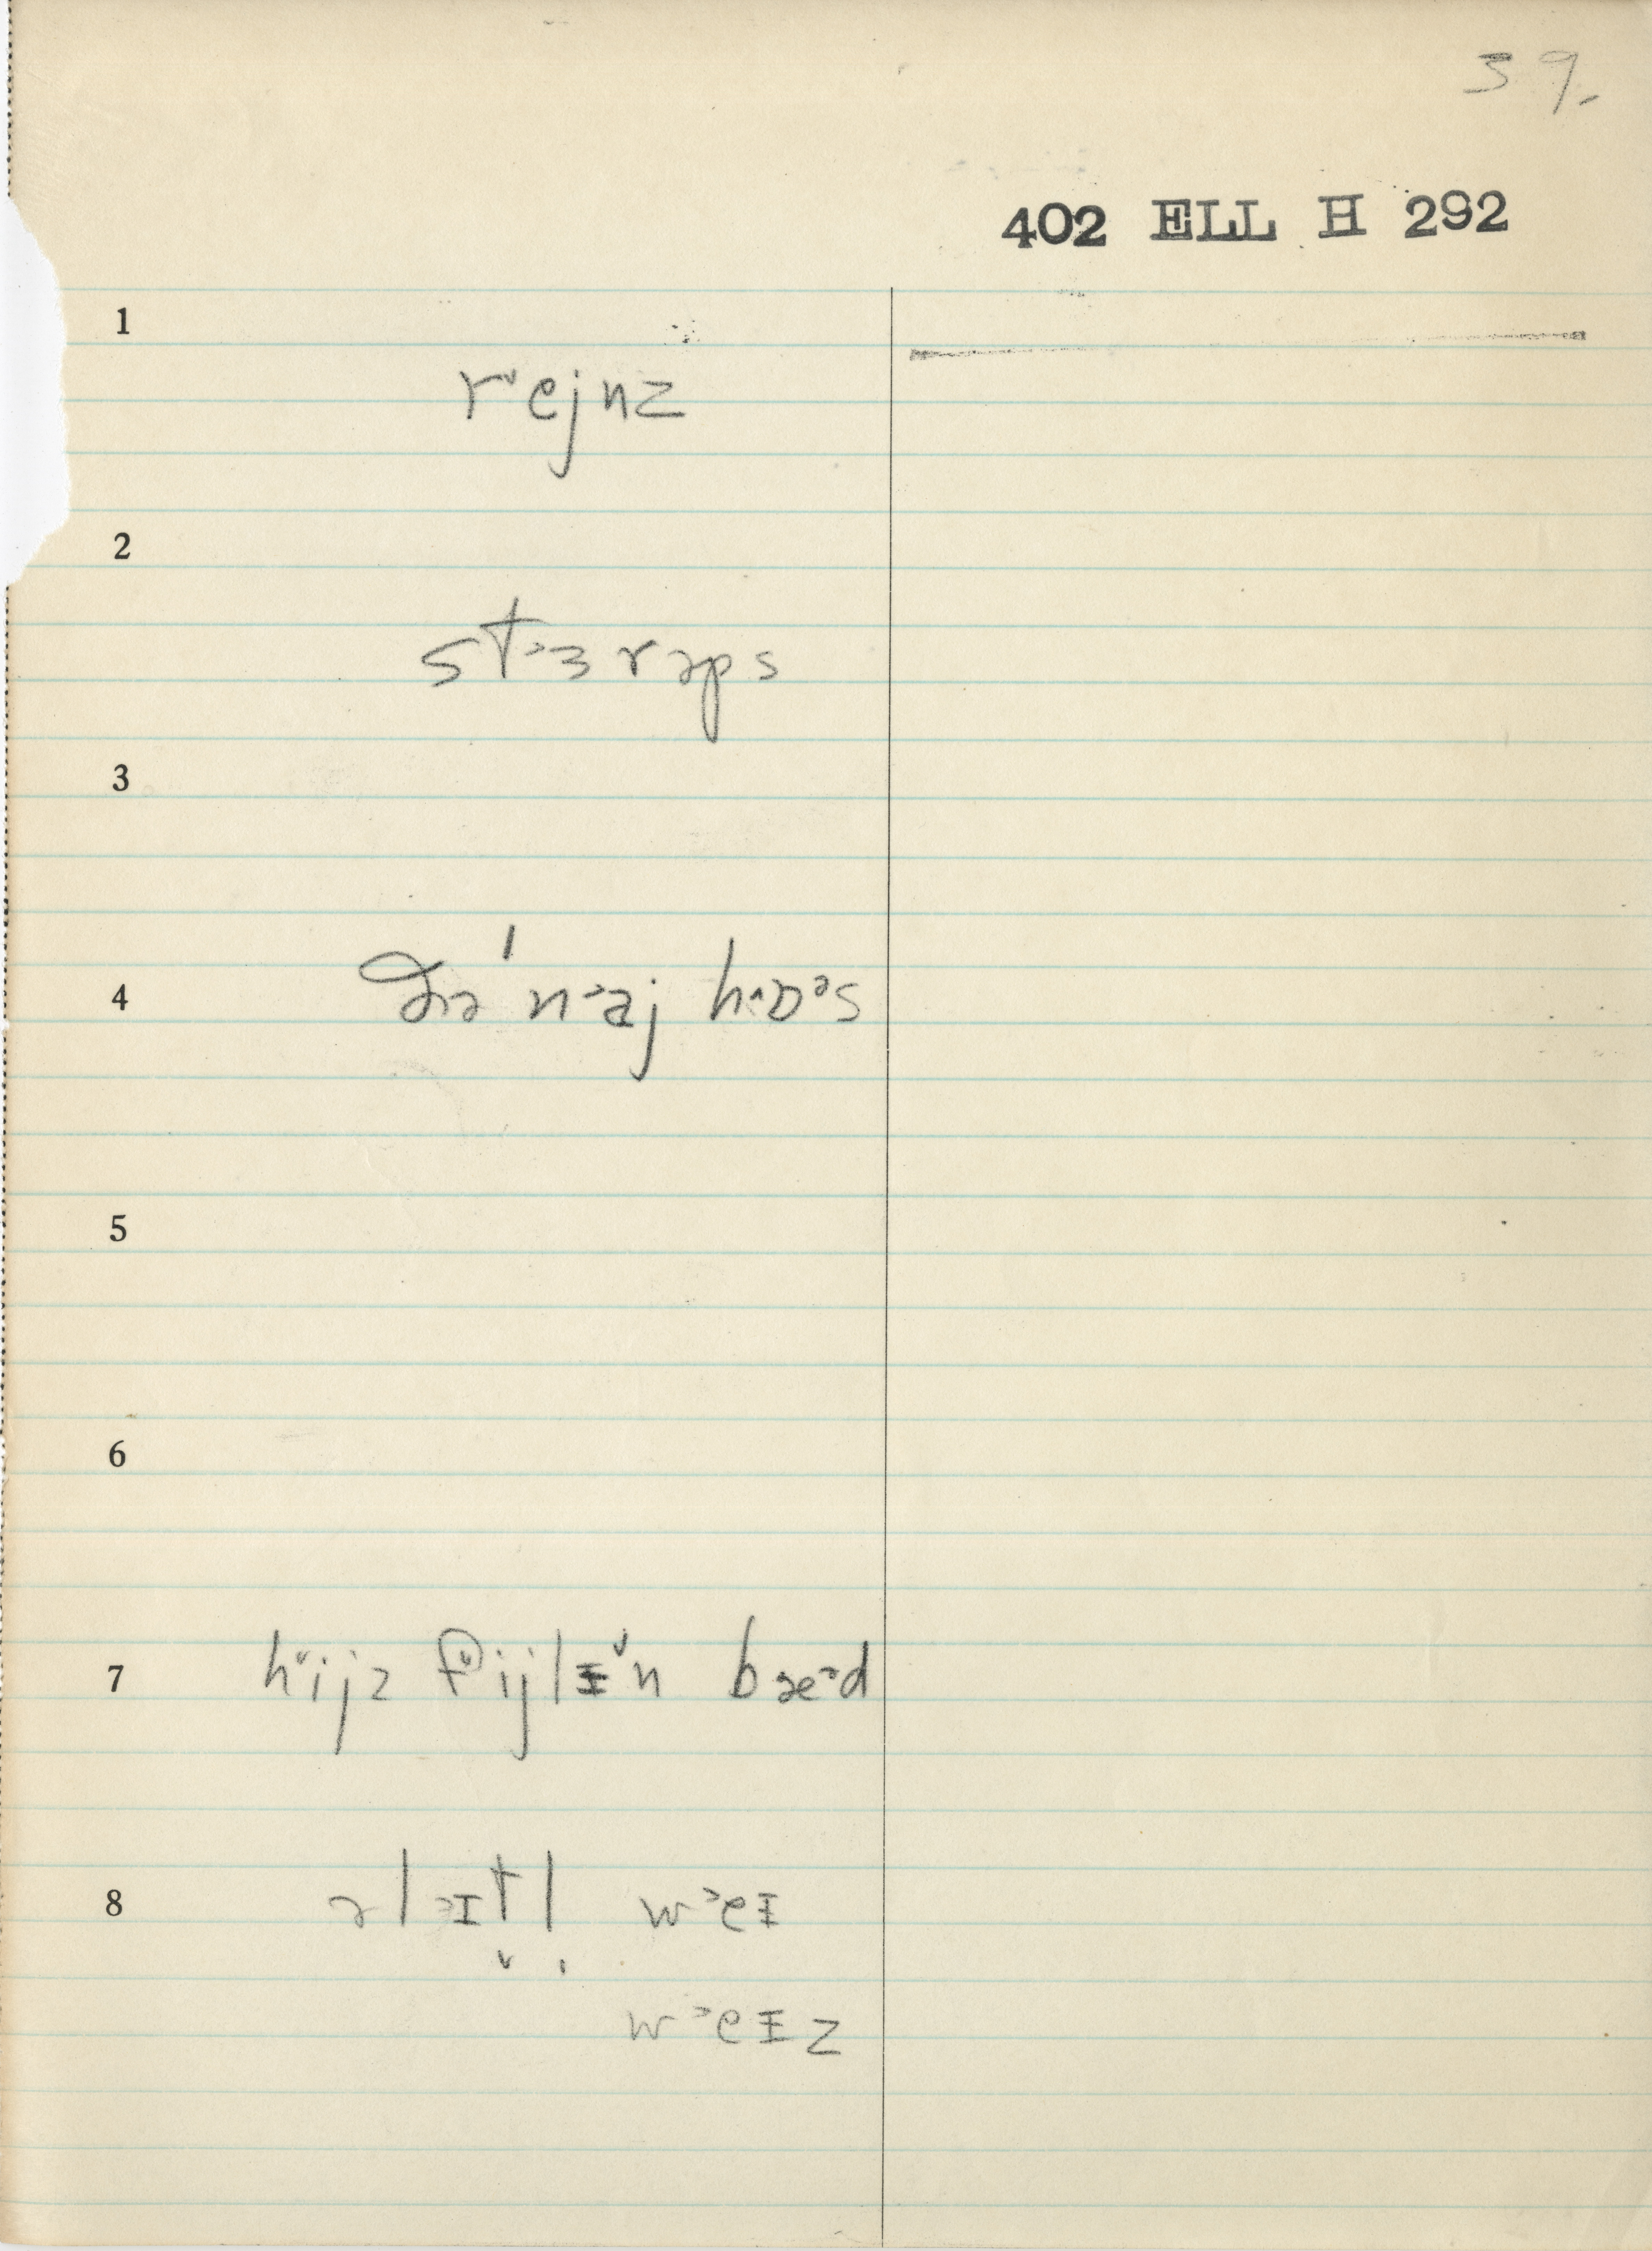 39.
402 ELL H 292
1
rᵛejnz
2
st˃ɜrəps
3
4
ðə́ n˃aj h˄ɒˀs
5
6
7
hᵛijz fᵛijlɪ̵ᵛn bæ˃d
8
əl˃ɪt̬l̩ w˃eɪ̵
w˃eɪ̵z